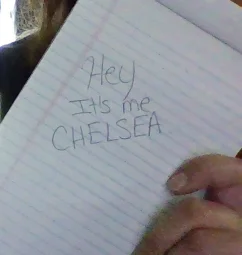 Hey
It's me
CHELSEA